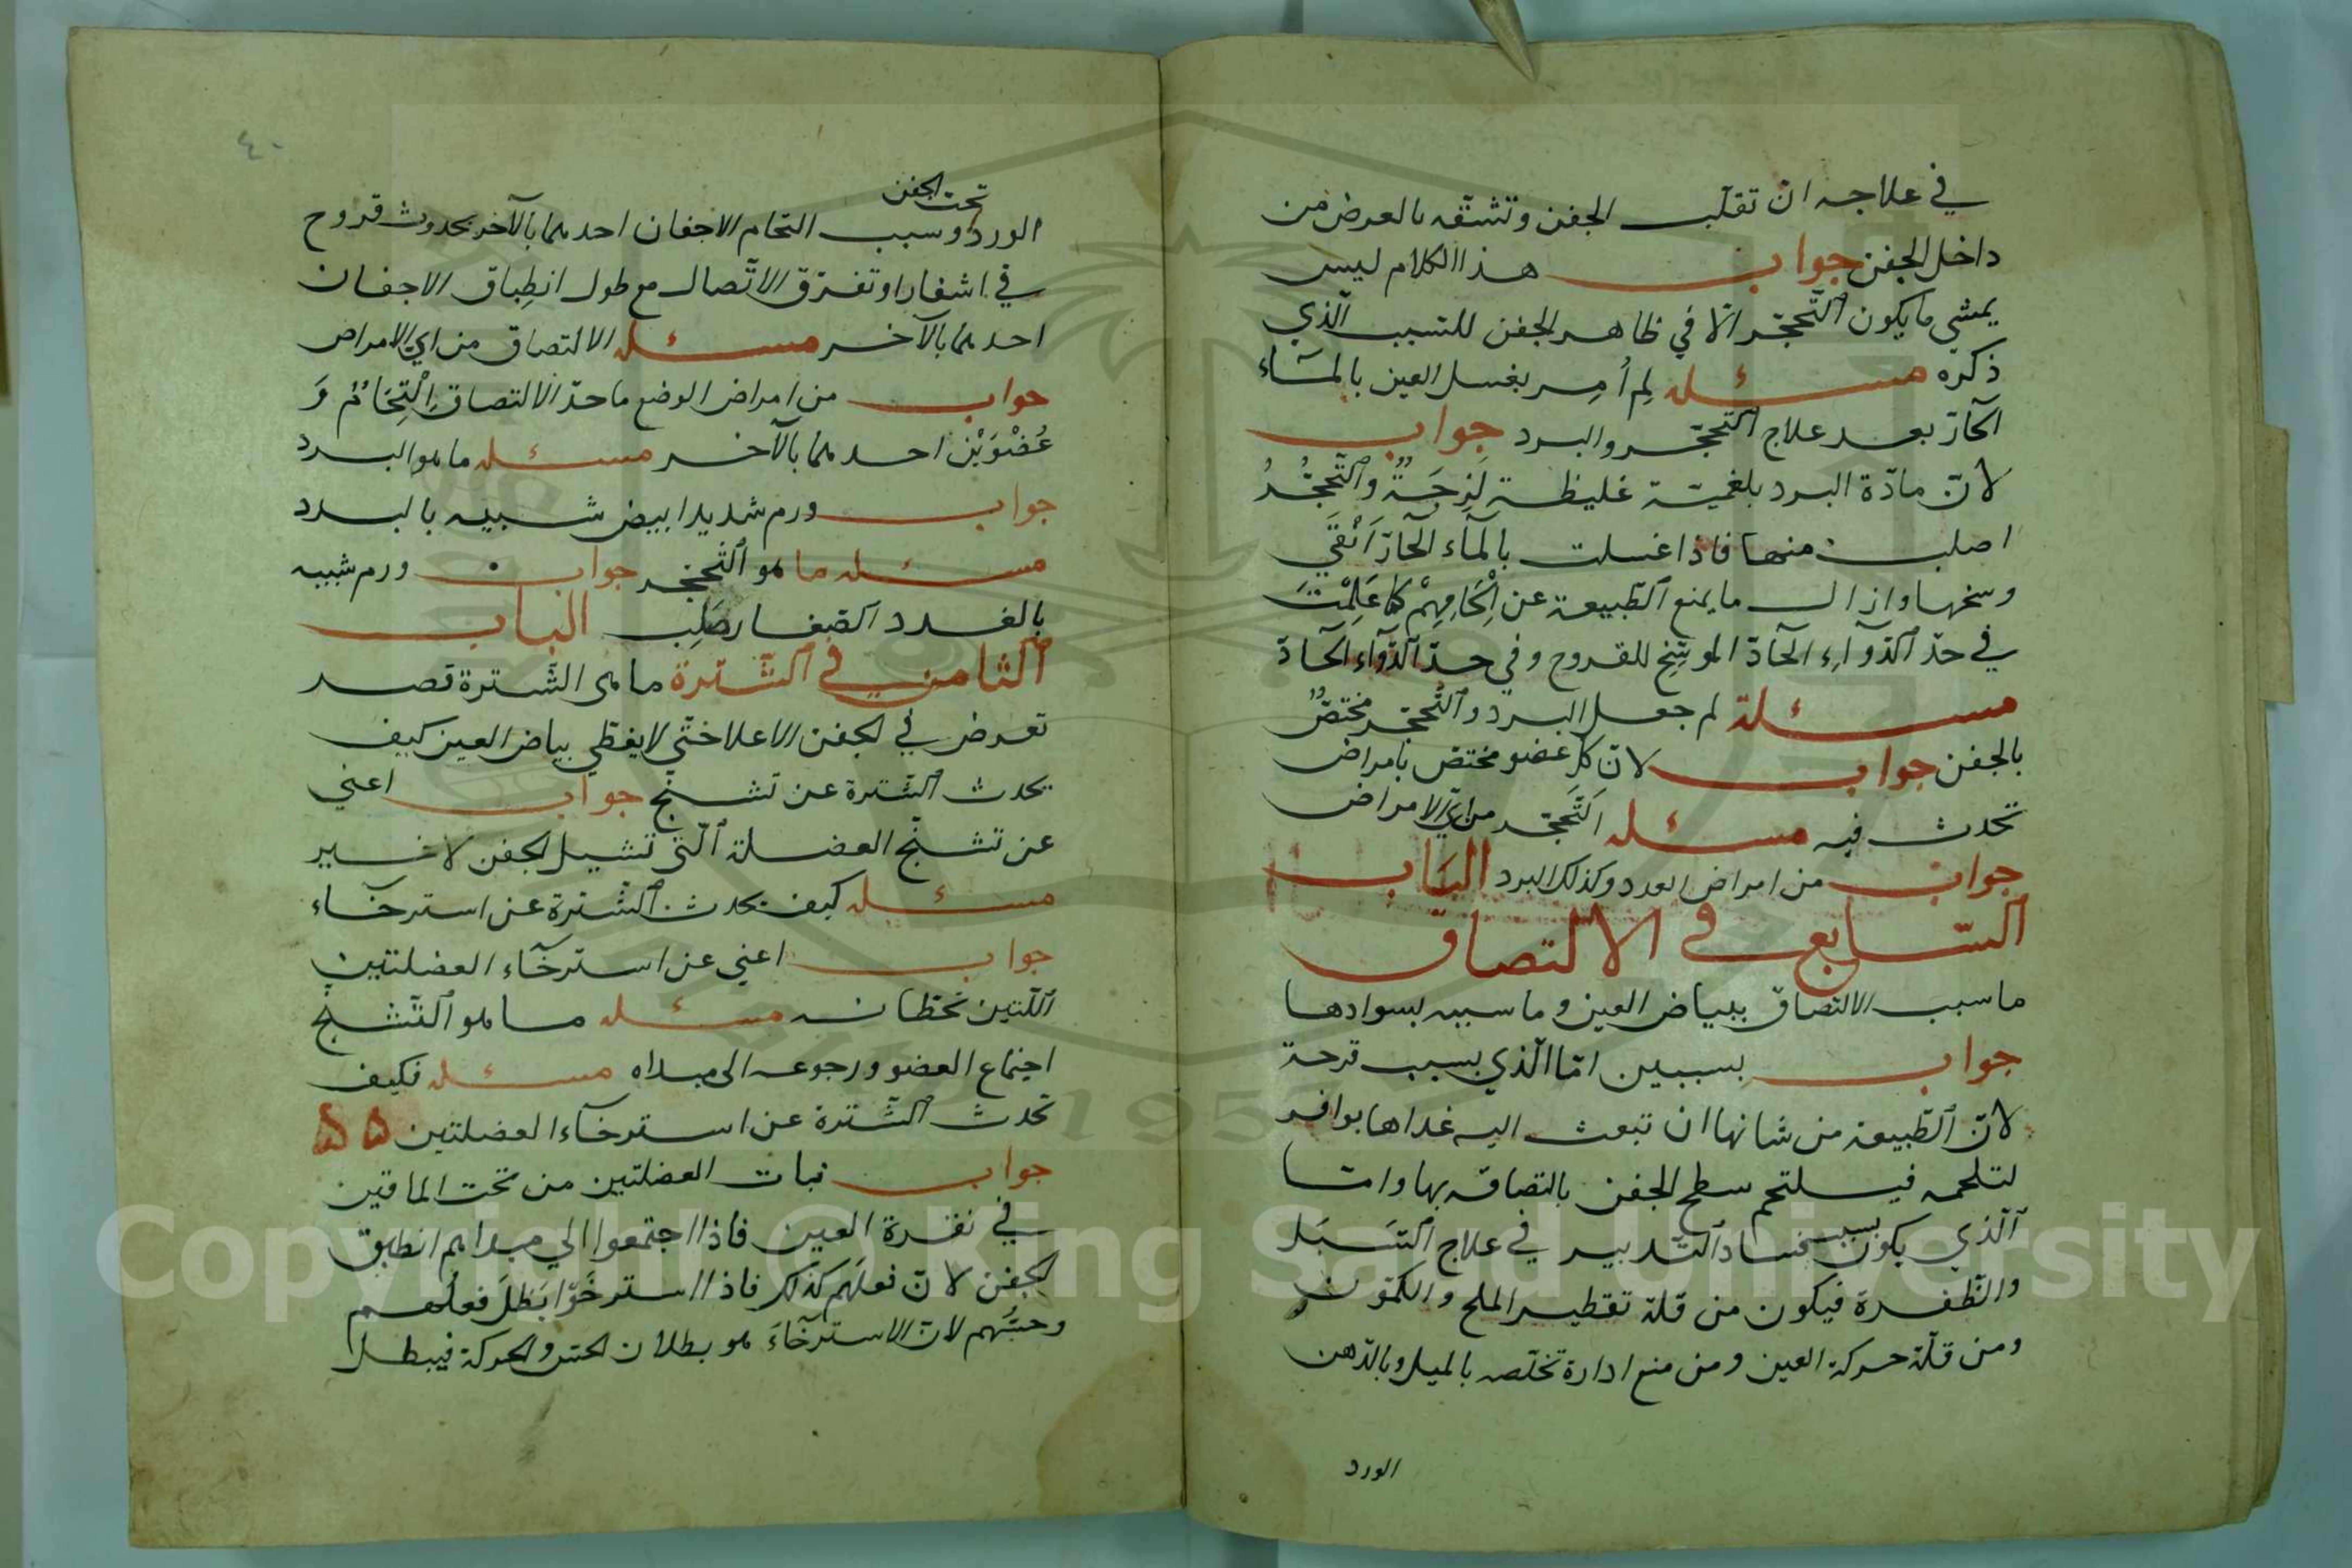 في علاجه ان تقلب الجفن وتشقه بالعرض من
داخل الجفن جواب هذا الكلام ليس
يمشي ما يكون التحجّر الّا في ظاهر الجفن للسبب الّذي
ذكره مسئله لِم أُمِر بغسل العين بالمآء
الحارّ بعد علاج التحجّر والبرد جواب
لانّ مادّة البرد بلغميّة غليظة لَزِجَةٌ والتّحجُّرُ
اصلب منها فاذا غسلت بالمآء الحارّ انْقَي
وسخها وازال ما يمنع الطّبيعة عن الْحَامِهِمْ كما عَلِمْتَ
في حدّ الدّوآءِ الحادّ الموسّخ للقروح وفي حدّ الدّوآء الحادّ
مسئلة لم جعل البرد والتّحجّر مختصٌّ
بالجفن جواب لانّ كلّ عضو مختصّ بامراض
تحدث فيه مسئله التّحجّر من ايّ الامراض
جواب من امراض العدد وكذلك البرد البَاب
السّابع في الالتصاق
ما سبب الالتصاق ببياض العين وما سببه بسوادها
جواب بسببين امّا الّذي بسبب قرحة
لانّ الطّبيعة من شانها ان تبعث اليه غداها بوافر
لتلحمه فيلتحم سطح الجفن بالتصاقه بها وامّا
الّذي يكون بسبب فساد التّدبير في علاج السَّبَل
والظّفرة فيكون من قلة تقطير الملح والكمّون
ومن قلّة حركة العين ومن منع ادارة تخلّصه بالميل وبالدّهن
الورد
٤٠
تحت الجفن
الورد او سبب التحام الاجفان احدهما بالآخر بحدوث قروح
في اشفار او تفرّق الاتّصال مع طول انطِباق الاجفان
احدهما بالآخر مسئله الالتصاق من اي الامراض
جواب من امراض الوضع ما حدّ الالتصاق اِلْتِحَامُ
عُضْوَيْن احدهما بالآخر مسئله ما هو البرد
جواب ورم شديد ابيض شبيه بالبرد
مسئله ما هو التّحجّر جواب ورم شبيه
بالغدد الصّغار صَلِب الباب
الثامن في الشّترة ما هي الشّترة قصر
تعرض في الجفن الاعلا حتّي لا يغطّي بياض العين كيف
يحدث الشّترة عن تشنّج جواب اعني
عن تشنّج العضلة الّتي تشيل الجفن لا غير
مسئله كيف يحدث الشّترة عن استرخآء
جواب اعني عن استرخآء العضلتين
اللّتين تحطّانه مسئله ما هو التّشنّج
اجتماع العضو ورجوعه الى مبداه مسئله فكيف
تحدث الشّترة عن استرخآء العضلتين ۵۵
جواب نبات العضلتين من تحت الماقين
في نقرة العين فاذا اجتمعوا الي مبداهم انطبق
الجفن لانّ فعلَهم كذلك فاذا استرخَوّا بَطَلَ فعلُهم
وحسّهم لانّ الاسترخآءَ هو بطلان الحسّ والحركة فيبطل
Copyright © King Saud University
1957